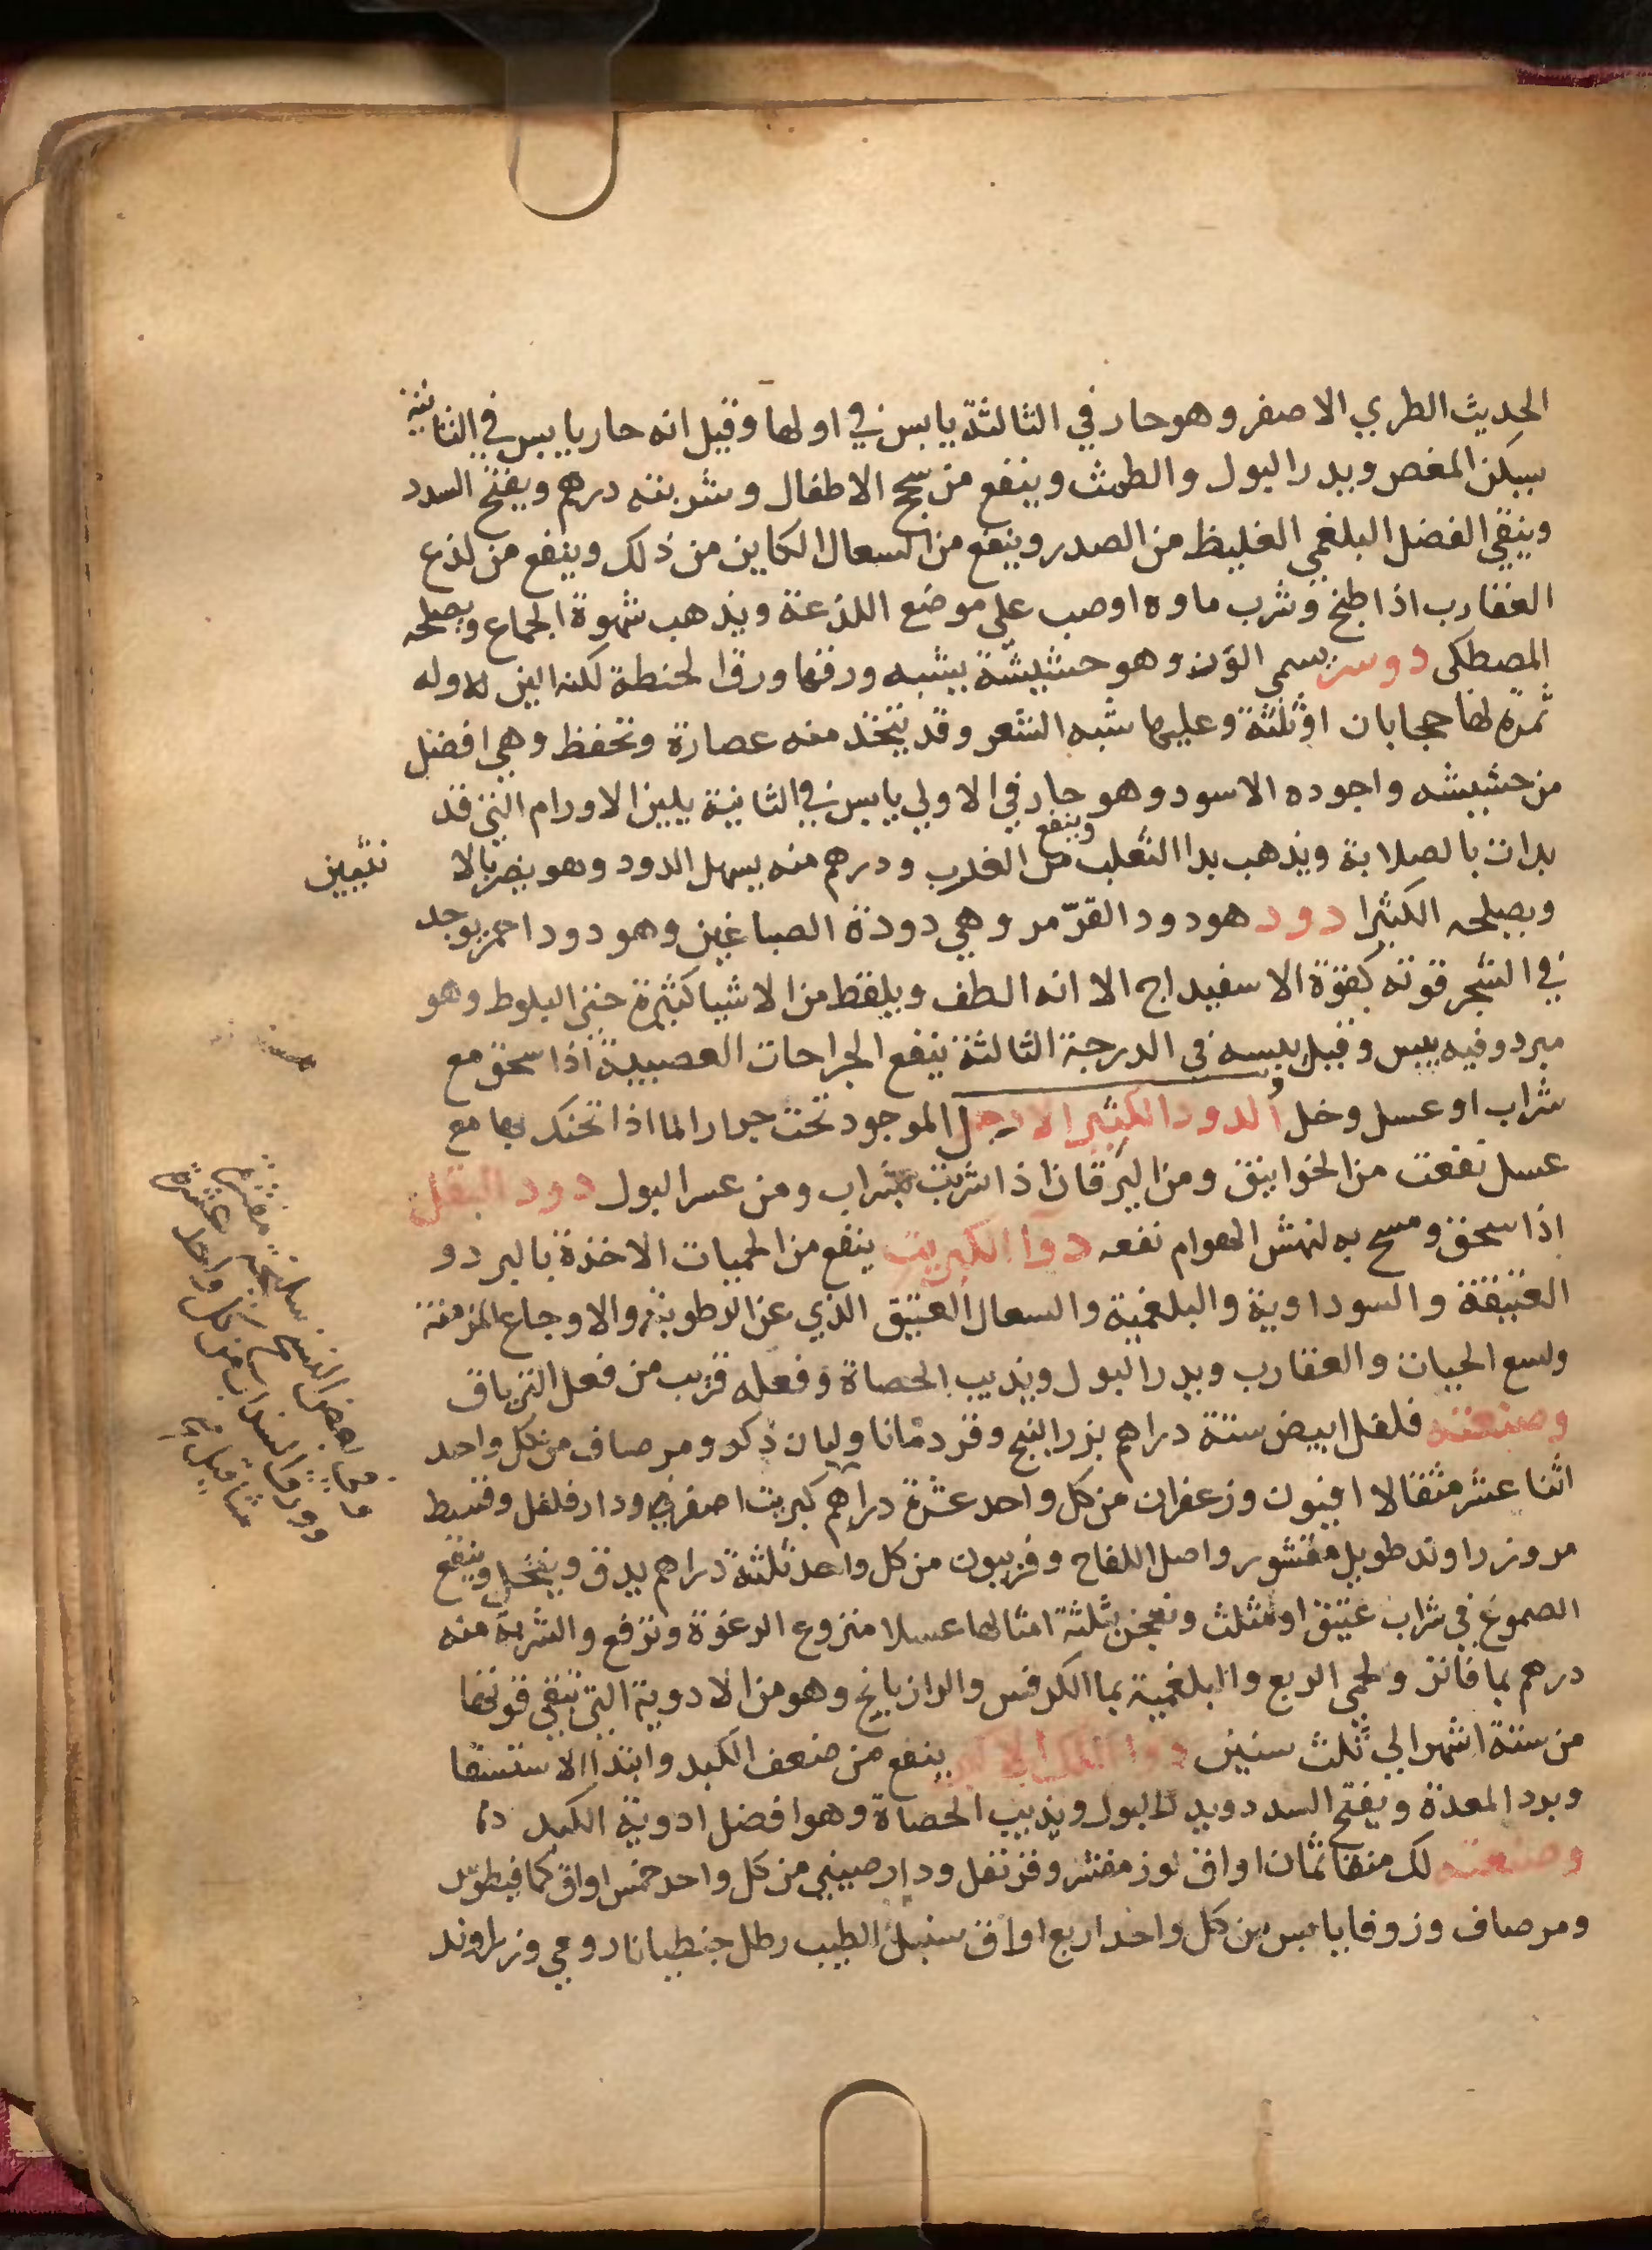 الحديث الطري الاصفر وهو حار في الثالثة يابس في اولها وقيل انه حار يابس في الثانية
يسكن المغص ويدر البول والطمث وينفع من سحج الاطفال وشربته درهم ويفتح السدد
وينقي الفضل البلغمي الغليظ من الصدر وينفع من السعال الكاين من ذلك وينفع من لذع
العقارب اذا طبخ وشرب ماوه او صب على موضع اللذعة ويذهب شهوة الجماع ويصلحه
المصطكى دوسر سمي الزن وهو حشيشة يشبه ورقها ورق الحنطة لكنه الين الا وله
ثمرة لها حجابان او ثلثة وعليها شبه الشعر وقد يتخذ منه عصارة وتحفظ وهي افضل
من حشيشه واجوده الاسود وهو حار في الاولي يابس في الثانية يلين الاورام التي قد
بدات بالصلابة ويذهب بدا الثعلب وينفع من الغرب ودرهم منه يسهل الدود وهو يضر بالا نثيين
ويصلحه الكثيرا دود هو دود القرمز وهي دودة الصباغين وهو دود احمر يوجد
في الشجر قوته كقوة الاسفيداج الا انه الطف ويلقط من الاشيا كثيرة حتى البلوط وهو
مبرد وفيه يبس وقيل يبسه في الدرجة الثالثة ينفع الجراحات العصبية اذا سحق مع
شراب او عسل وخل الدود الكثير الارجل الموجود تحت جرار الما اذا تحنك بها مع
عسل نفعت من الخوانيق ومن اليرقان اذا شربت بشراب ومن عسر البول دود البقل
اذا سحق ومسح به لنهش الهوام نفعه دوا الكبريت ينفع من الحميات الاخذة بالبرد و
العتيقة والسوداوية والبلغمية والسعال العتيق الذي عن الرطوبة والاوجاع المزمنة
ولسع الحيات والعقارب ويدر البول ويذيب الحصاة وفعله قريب من فعل الترياق
وصنعته فلفل ابيض ستة دراهم بزر البنج وقردمانا ولبان ذكر ومر صاف من كل واحد
اثنا عشر مثقالا افيون وزعفران من كل واحد عشرة دراهم كبريت اصفر ودار فلفل وقسط
مر وزراوند طويل مقشور واصل اللفاح وفربيون من كل واحد ثلثة دراهم يدق وينخل وينقع
الصموغ في شراب عتيق او مثلث ونعجن بثلثة امثالها عسلا منزوع الرغوة وترفع والشربة منه
درهم بما فاتر ولحمي الربع والبلغمية بما الكرفس والرازيانج وهو من الادوية التي تبقى قوتها
من ستة اشهر الي ثلث سنين دوا اللك الاكبر ينفع من ضعف الكبد وابتدا الاستسقا
وبرد المعدة ويفتح السدد ويدر البول ويذيب الحصاة وهو افضل ادوية الكبد
وصنعته لك منقا ثمان اواق لوز مقشر وقرنفل ودار صيني من كل واحد خمس اواق كمافيطوس
ومر صاف وزوفا يابس من كل واحد اربع اواق سنبل الطيب رطل جنطيانا رومي وزراوند
سليخة مقشرة
من كل واحد عشرة
وورق السذاب
مثاقيل